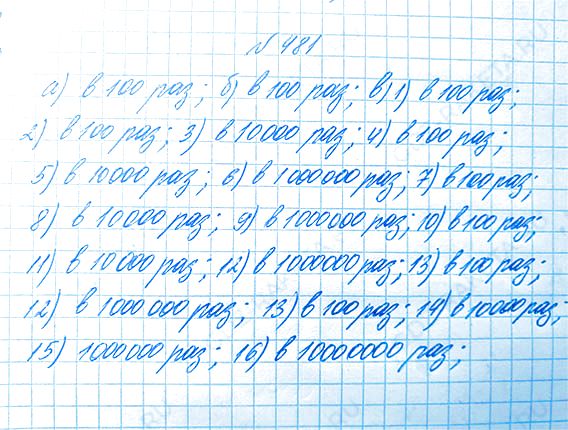 № 481
а) в 100 раз; б) в 100 раз; в) 1) в 100 раз;
2) в 100 раз; 3) в 10 000 раз; 4) в 100 раз;
5) в 10000 раз; 6) в 1 000000 раз; 7) в 100 раз;
8) в 10 000 раз; 9) в 1000000 раз; 10) в 100 раз;
11) в 10 000 раз; 12) в 1000000 раз; 13) в 100 раз;
12) в 1000 000 раз; 13) в 100 раз; 14) в 10000 раз;
15) 1000000 раз; 16) в 10000000 раз;